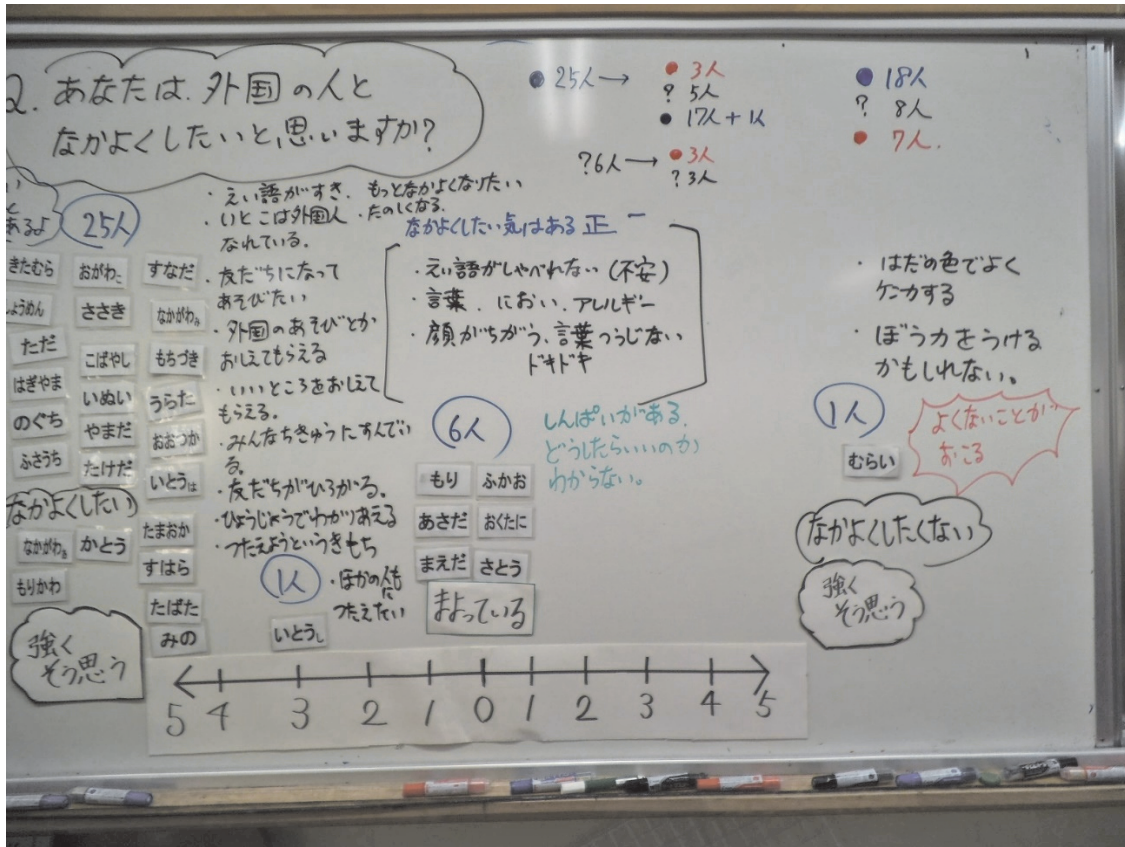 Q. あなたは、外国の人と
なかよくしたいと、思いますか？
● 25人→ ● 3人
? 5人
● 17人+1人
?6人→ ● 3人
? 3人
● 18人
? 8人
● 7人.
25人
きたむら
ただ
はぎやま
のぐち
ふさうち
なかよくしたい
なかがわ
もりかわ
おがわこ
ささき
こばやし
いぬい
やまだ
たけだ
かとう
すなだ
なかがわみ
もちづき
うらた
おおつか
いとうは
たまおか
すはら
たばた
みの
強く
そう思う
・えい語がすき、もっとなかよくなりたい
・いとこは外国人 ・たのしくなる.
なれている.
・友だちになって
あそびたい
・外国のあそびとか
おしえてもらえる
・いいところをおしえて
もらえる.
・みんなちきゅうにすんでい
る.
・友だちがひろがる.
・ひょうじょうでわかりあえる
・つたえようというきもち
1人
・ほかの人も
に
つたえたい
いとうし
なかよくしたい気はある 正一
・えい語がしゃべれない(不安)
・言葉、におい、アレルギー
・顔がちがう、言葉つうじない
ドキドキ
6人
しんぱいがある.
どうしたらいいのか
わからない。
もり
ふかお
あさだ
おくたに
まえだ
さとう
まよっている
・はだの色でよく
ケンカする
・ぼう力をうける
かもしれない。
1人
むらい
よくないことが
おこる
なかよくしたくない
強く
そう思う
5 4 3 2 1 0 1 2 3 4 5